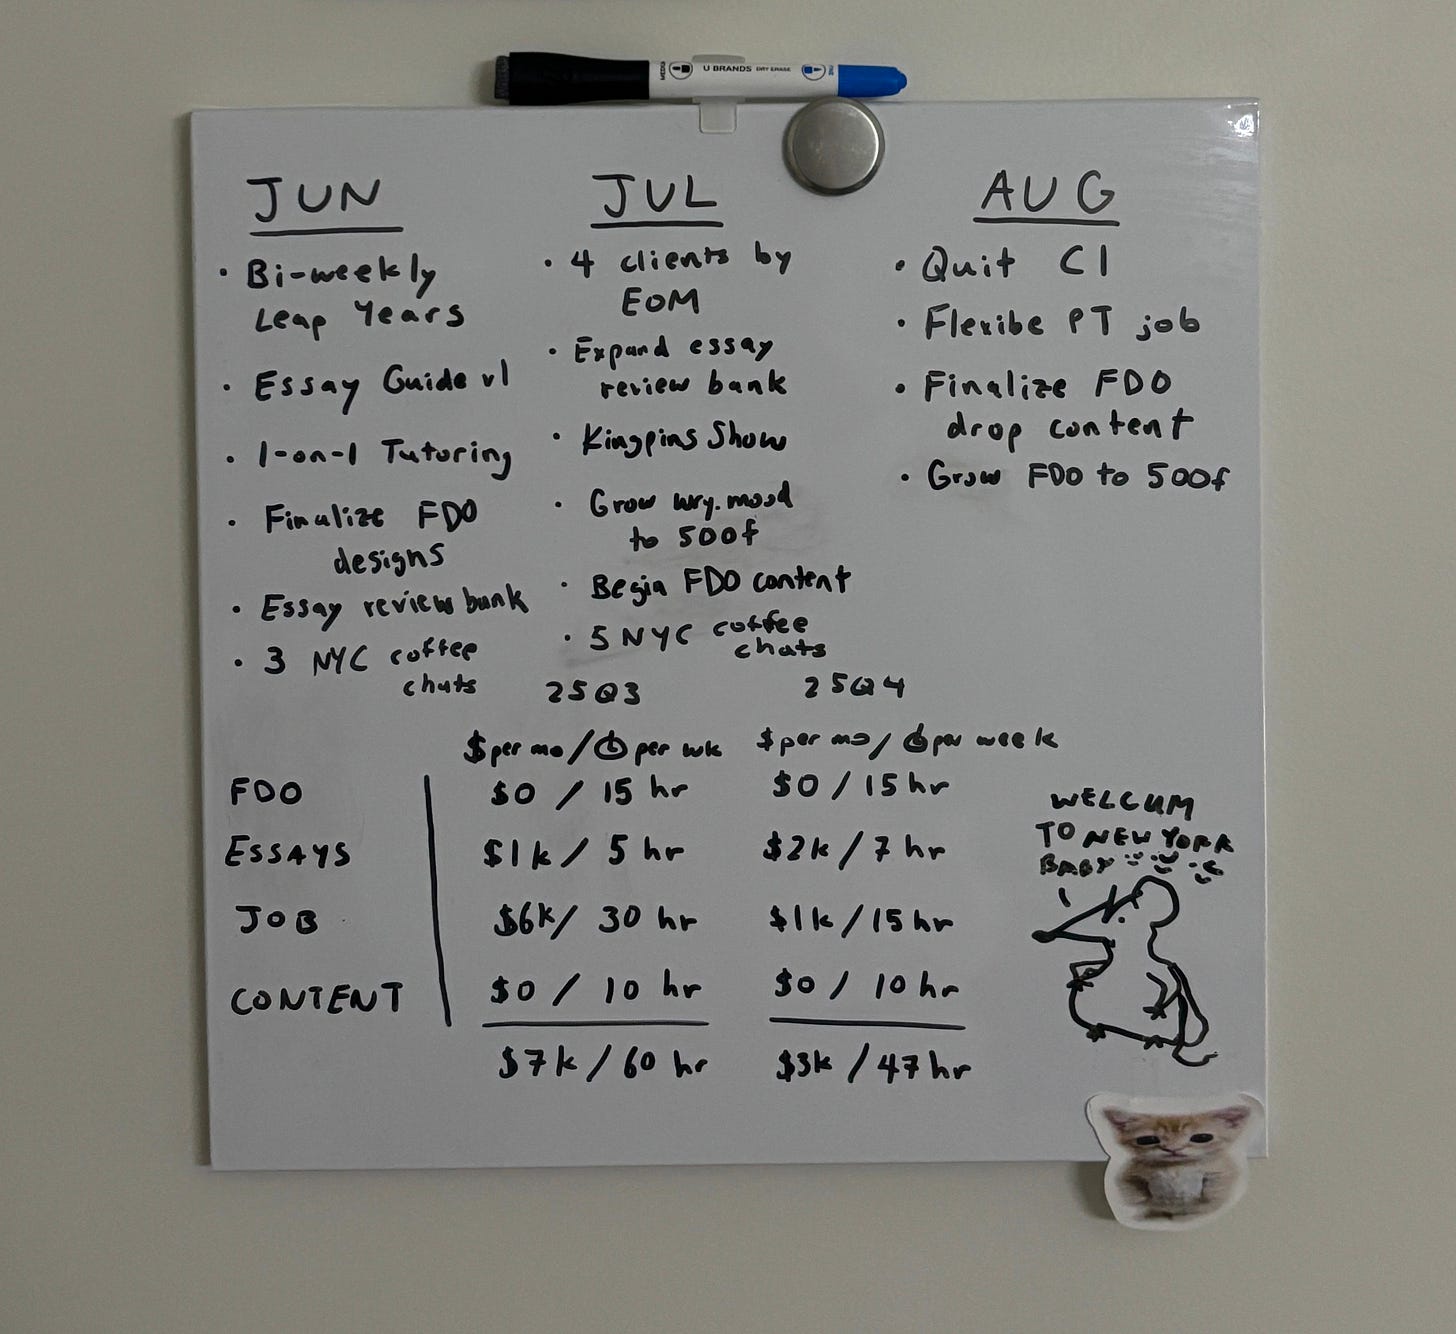 U BRANDS DRY ERASE
JUN
• Bi-weekly
Leap Years
• Essay Guide v1
• 1-on-1 Tutoring
• Finalize FDO
designs
• Essay review bank
• 3 NYC coffee
chats
JUL
• 4 clients by
EOM
• Expand essay
review bank
• Kingpins Show
• Grow wry.mood
to 500f
• Begin FDO content
• 5 NYC coffee
chats
AUG
• Quit CI
• Flexibe PT job
• Finalize FDO
drop content
• Grow FDO to 500f
25Q3 25Q4
$ per mo / per wk $ per mo / per week
FDO $0 / 15 hr $0 / 15 hr
ESSAYS $1k / 5 hr $2k / 7 hr
JOB $6k / 30 hr $1k / 15 hr
CONTENT $0 / 10 hr $0 / 10 hr
$7k / 60 hr $3k / 47 hr
WELCUM
TO NEW YORK
BABY